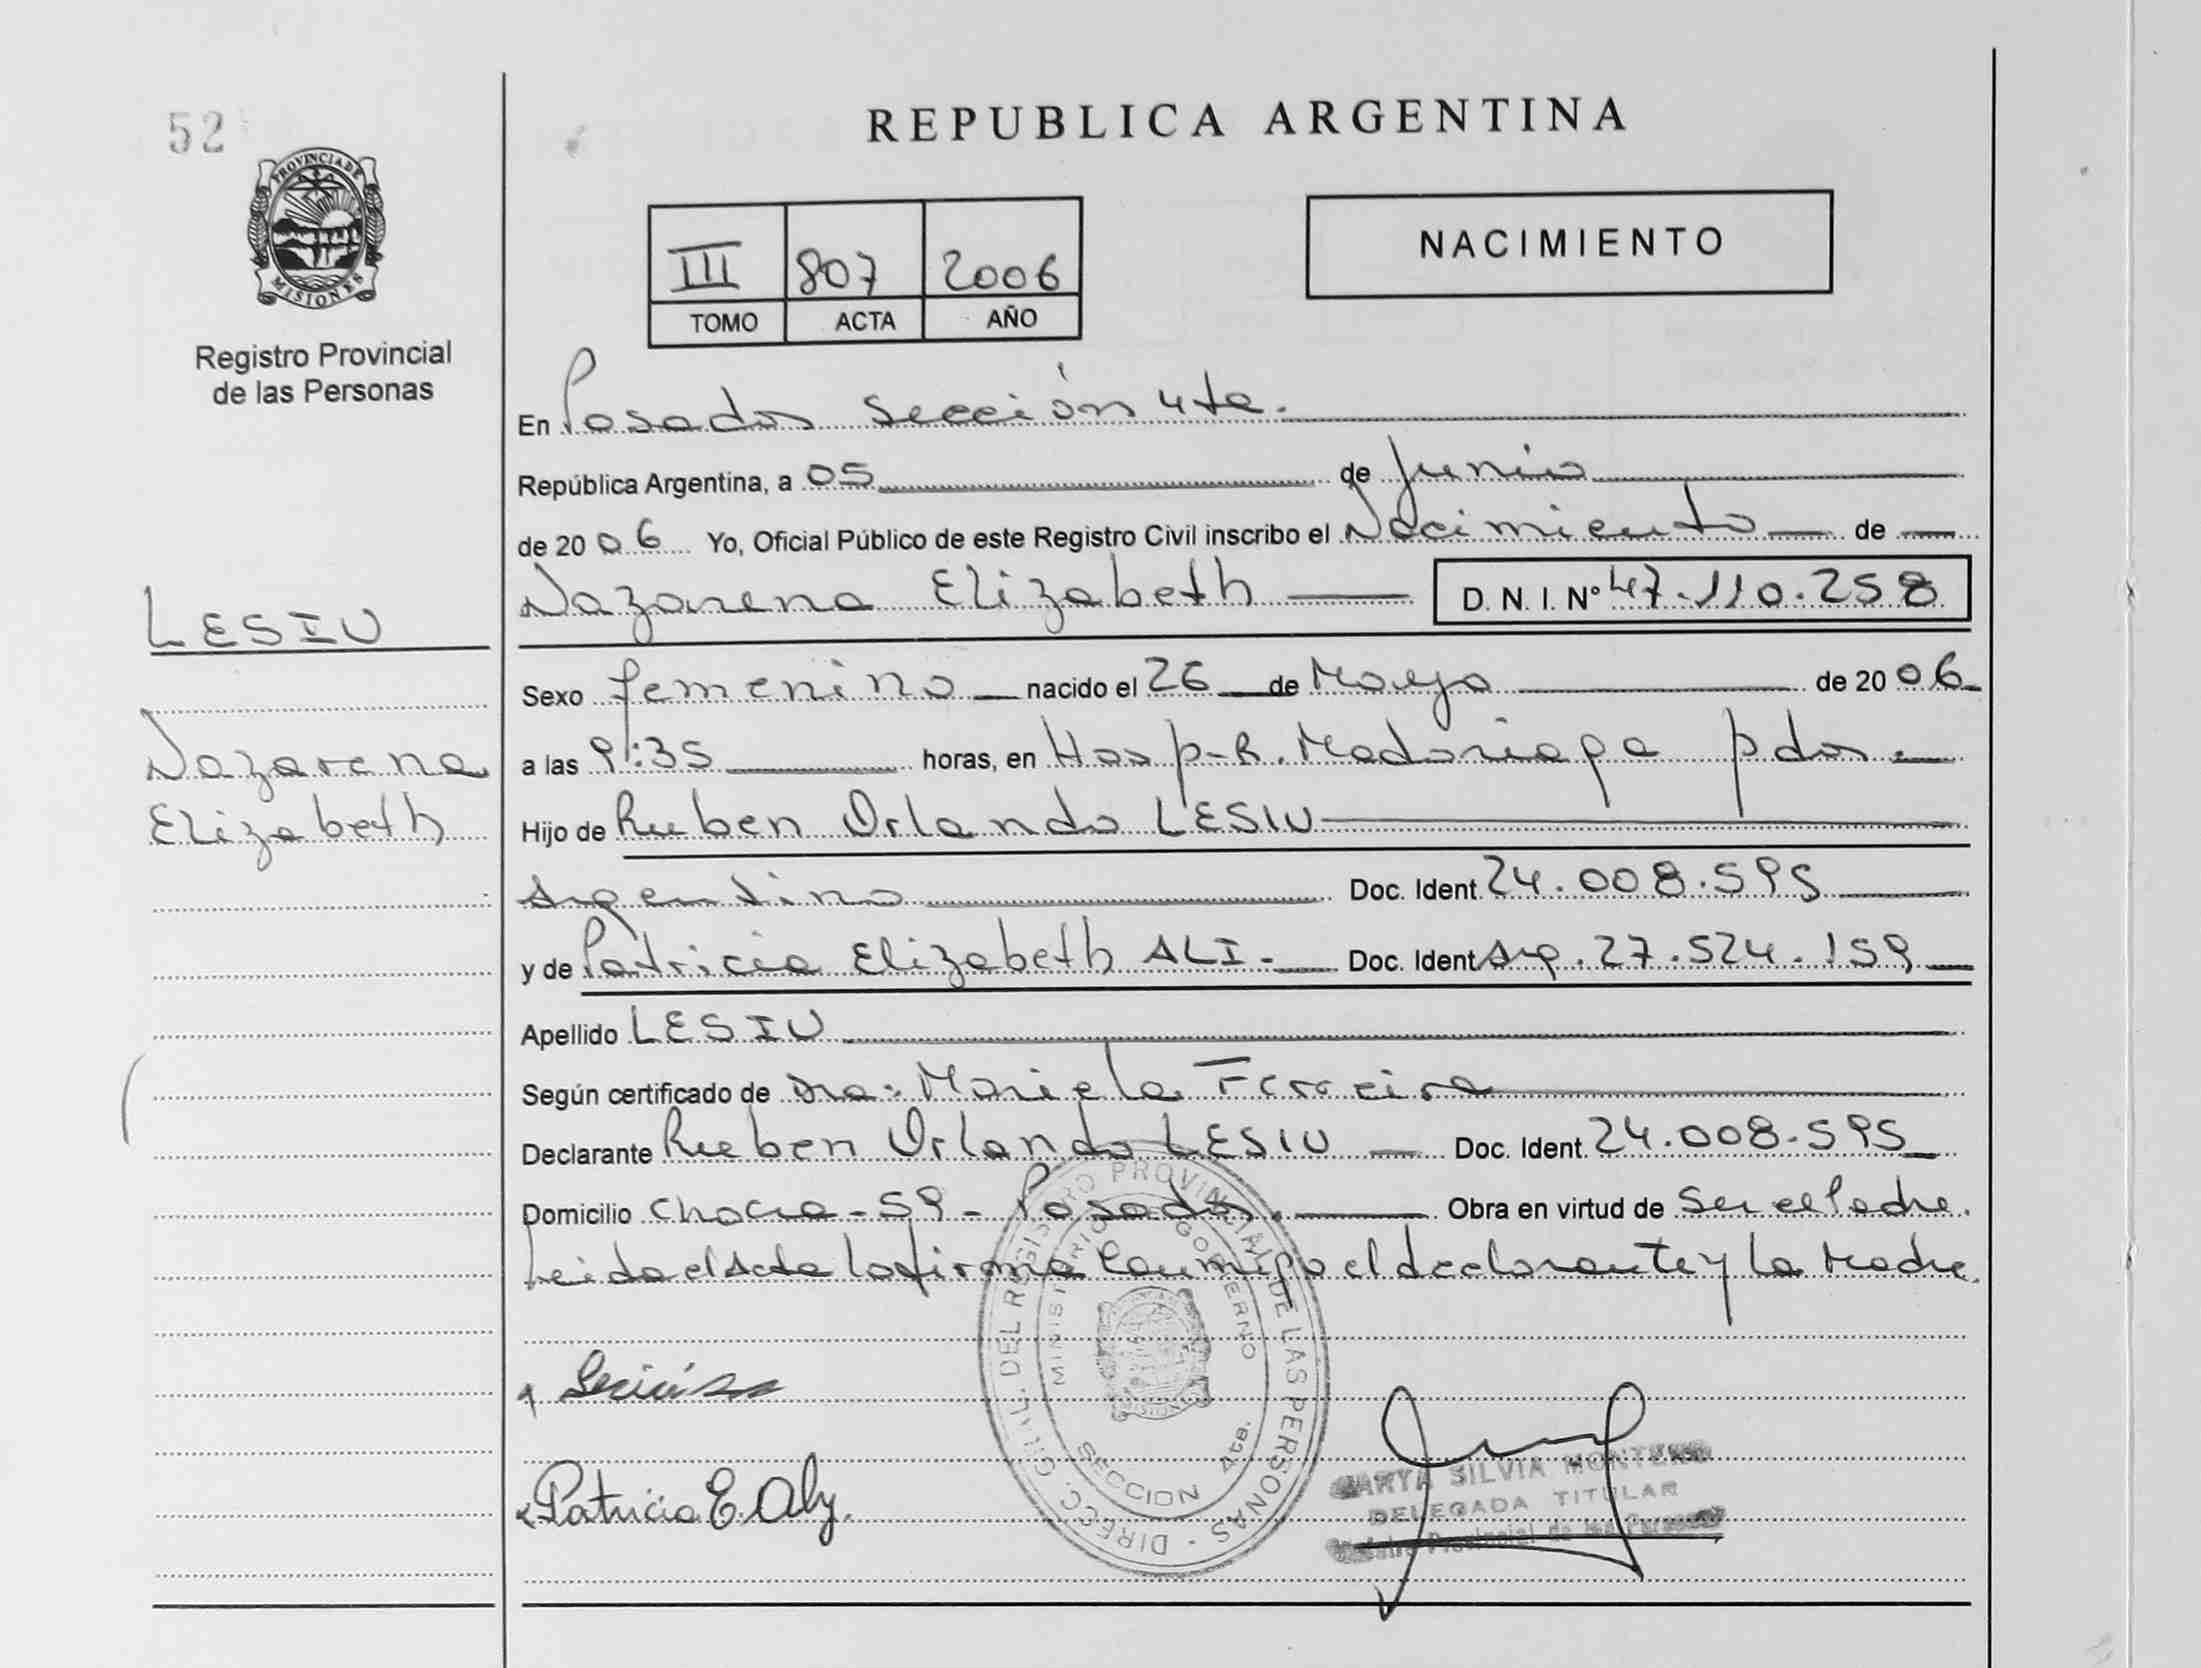 52
PROVINCIA DE
MISIONES
Registro Provincial
de las Personas
LESIU
Nazarena
Elizabeth
REPUBLICA ARGENTINA
III 807 2006
TOMO ACTA AÑO
NACIMIENTO
En Posadas Sección 4ta.
República Argentina, a 05 de Junio
de 2006 Yo, Oficial Público de este Registro Civil inscribo el Nacimiento de
Nazarena Elizabeth D. N. I. Nº 47.110.258
Sexo femenino nacido el 26 de Mayo de 2006
a las 9:35 horas, en Hosp-R. Madariaga pdas.
Hijo de Ruben Orlando LESIU
Argentino Doc. Ident. 24.008.595
y de Patricia Elizabeth ALI.- Doc. Ident Arg. 27.524.159
Apellido LESIU
Según certificado de Dra: Mariela Ferreira
Declarante Ruben Orlando LESIU Doc. Ident. 24.008.595
Domicilio chacra-59-Posadas. Obra en virtud de Ser el Padre.
Leida el Acta la firma Conmigo el declarante y la Madre.
DIREC. GRAL. DEL REGISTRO PROVINCIAL DE LAS PERSONAS
MINISTERIO GOBIERNO
SECCION 4ta.
Patricia E. Aly.
SILVIA MONTERO
DELEGADA TITULAR
Provincial de las Personas